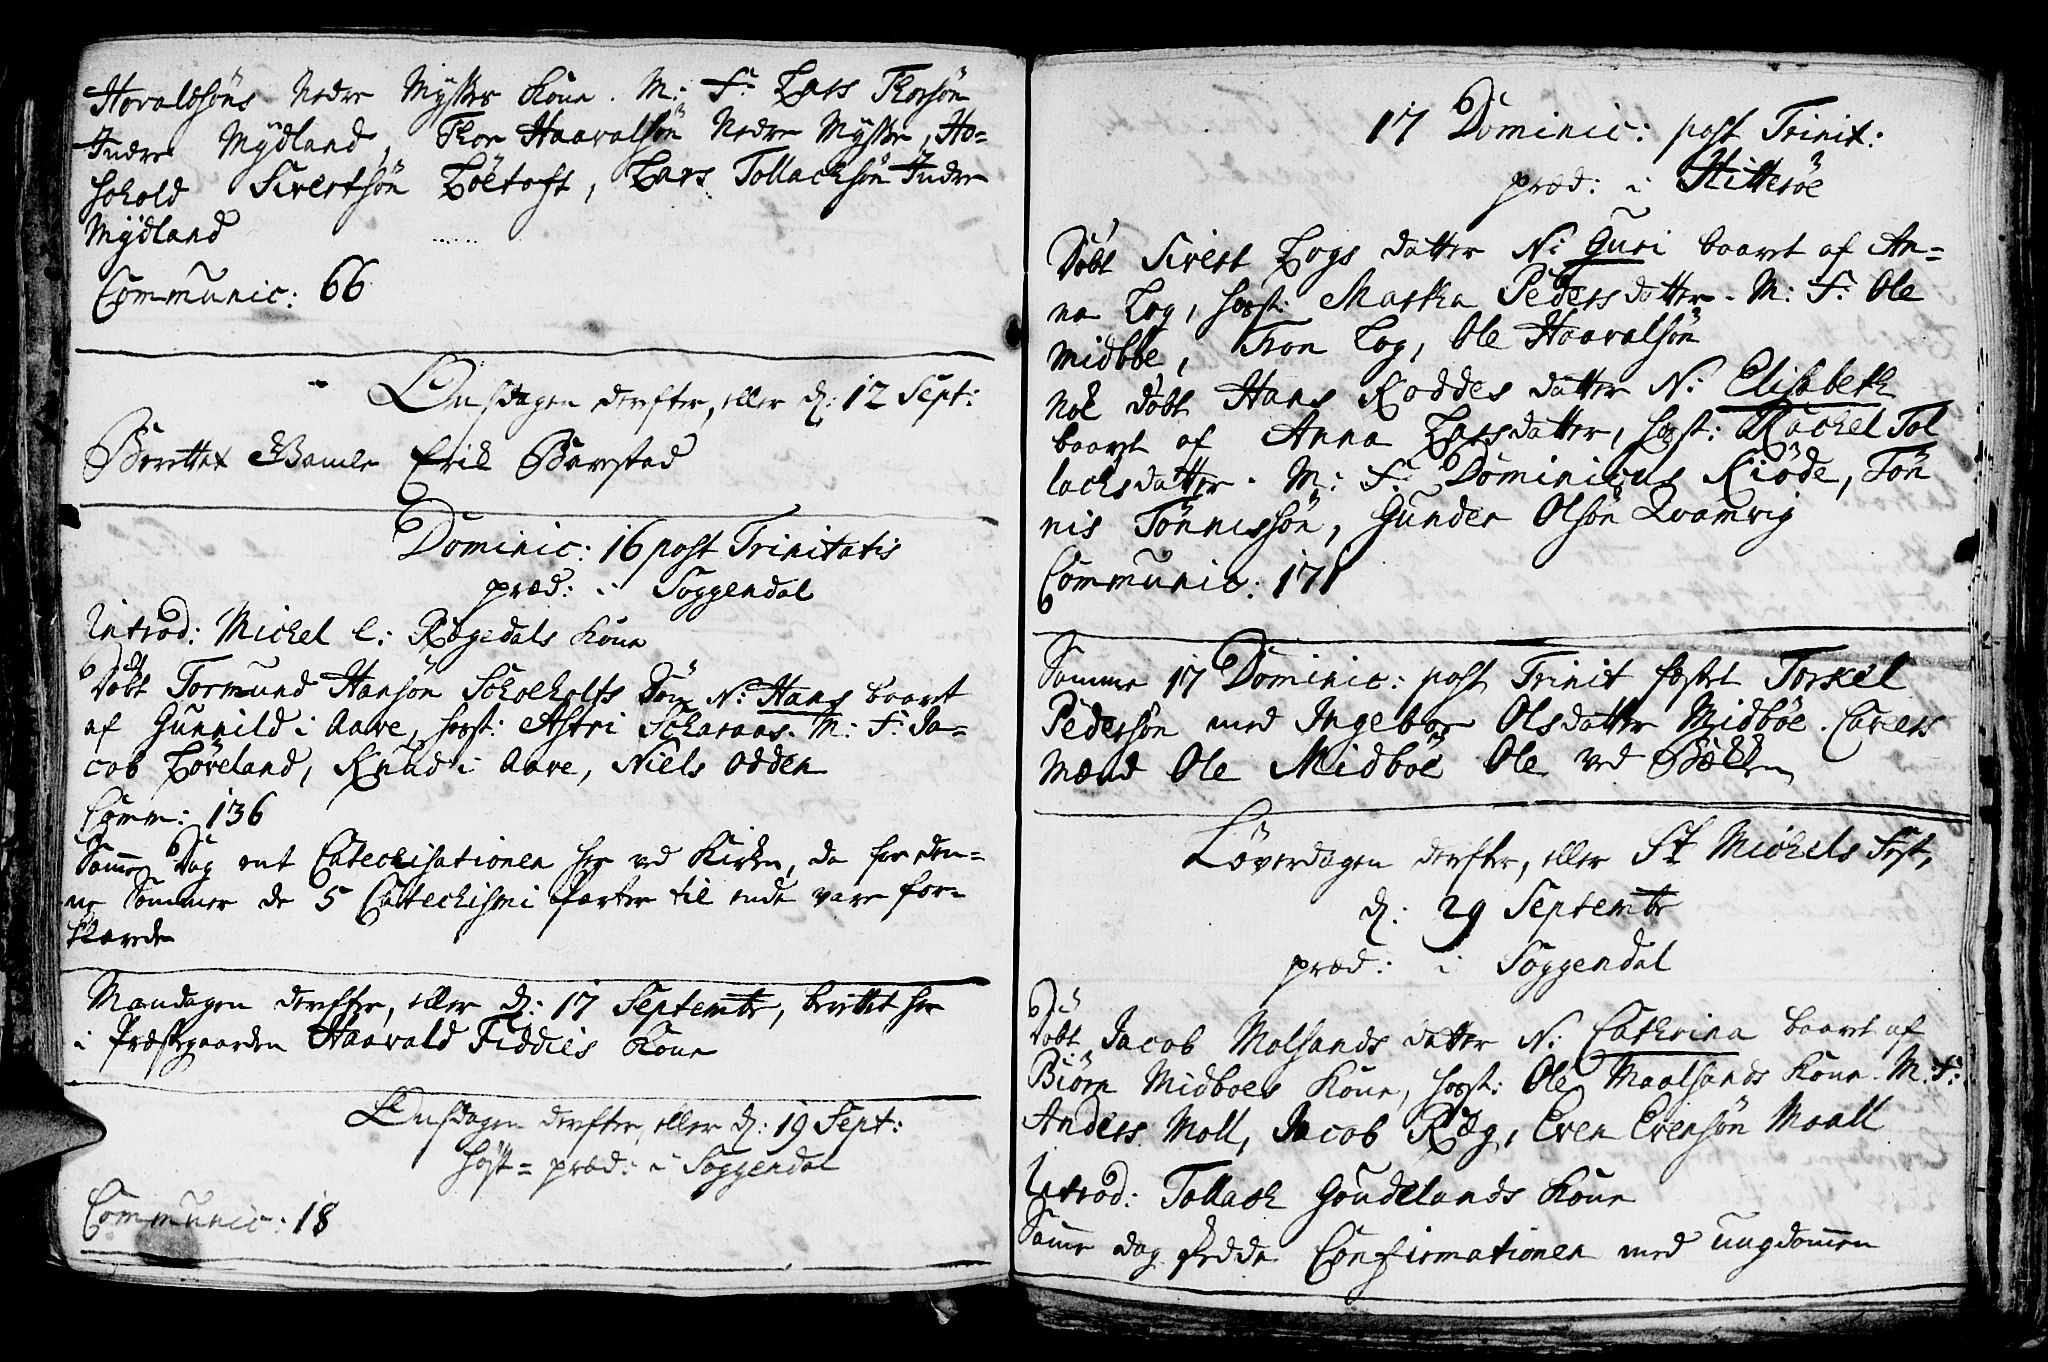 Hovaldsöns Nedre Mysses Kone. M: F: Lars Thorsön
Indre Mydland, Thor Haavalsön Nedre Mysse, Ho-
skold Sivertsön Löetoft, Lars Tollacksön Indre
Mydland
Communic: 66
Onsdagen derefter, eller d: 12 Sept:
Berettet Gamle Erik Barstad
Dominic: 16 post Trinitatis
præd: i Soggendal
Introd: Michel e: Rægedals Kone
Döbt Tormund Hansön Skolholts Sön N: Hans baaret
af Gunnild i Aare, hosst: Astri Scharaas. M: F: Ja-
cob Löveland, Knud i Aare, Niels Odden
Comm: 136
Samme Dag ent Catechisationen her ved Kirken, da for den-
ne Sommer de 5 Catechismi Parter til ende vare for-
klarede
Mandagen derefter, eller d: 17 Septembr, berettet her
i Præstegaarden Haavald Fiddies Kone
Onsdagen derefter, eller d: 19 Sept:
Höst= præd: i Soggendal
Communic: 18
17 Dominic: post Trinit:
præd: i Hitteröe
Döbt Sivert Logs datter N: Guri baaret af An-
na Log, hosst: Martha Pedersdatter. M: F: Ole
Midböe, Tron Log, Ole Haavalsön
Nok döbt Hans Roddes datter N: Elisabeth
baaret af Anna Larsdatter, hosst: Rachel Tol
lachsdatter. M: F: Dominicus Kiöde, Tön
nis Tönnissön, Gunder Olsön Qvamvig
Communic: 171
Samme 17 Dominic: post Trinit fæstet Torkel
Pedersön med Ingebor Olsdatter Midböe. Cavers
Mænd Ole Midböe Ole ved Bækken
Löverdagen derefter, eller St Michels Fest,
d: 29 Septembr
præd: i Soggendal
Döbt Jacob Molsands datter N: Cathrina baaret af
Biörn Midboes Kone, hosst: Ole Maalsands Kone. M: F:
Anders Moll, Jacob Ræg, Even Evensön Maall
Introd: Tollach Goudelands Kone
Samme dag skedde Confirmationen med ungdommen